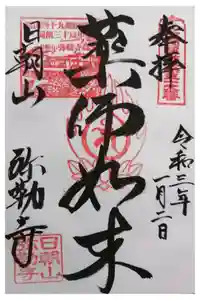 奉拝
令和三年
一月二日
薬師如来
日朝山
弥勒寺
日朝山
弥勒寺